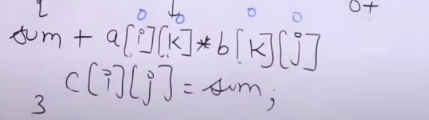 0 0 0 0 0+
sum + a[i][k]*b[k][j]
c[i][j] = sum;
3